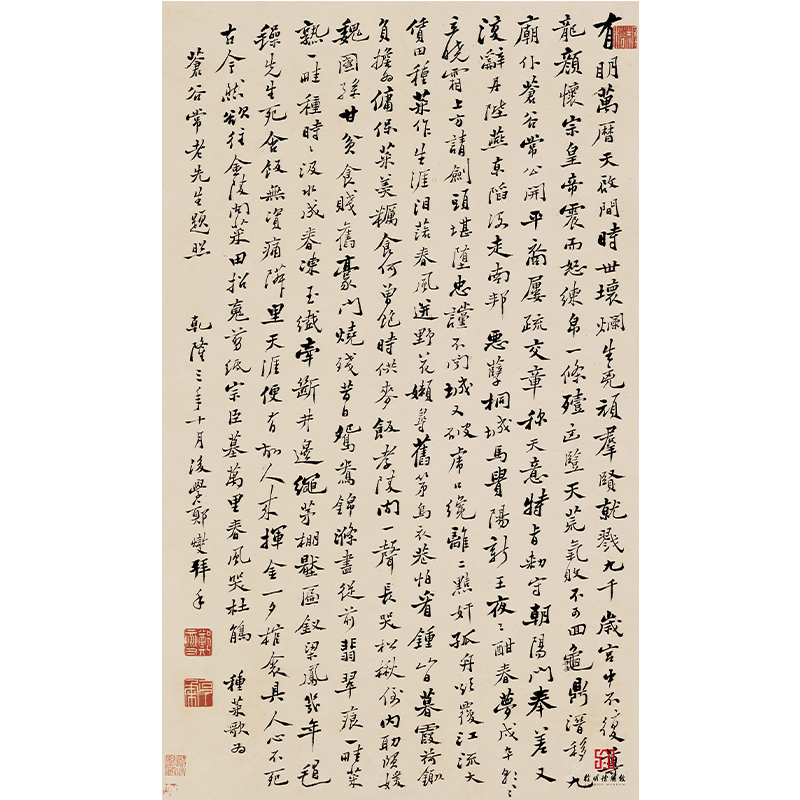 有明萬曆天啟間時世壞爛生兇頑羣賢就戮九千歲宮中不復尊
龍顏懷宗皇帝震而怒練帛一條殪豎天荒氣敗不可回龜鼎潛移九
廟仆蒼谷常公開平裔屢疏交章稱天意特旨勅守朝陽門奉差又
復辭丹陛燕京陷沒走南邦惡孽桐城馬貴陽新王夜〻酣春夢戍午朝〻
立曉霜上方請劍頭堪墮忠讜不聞城又破虎口纔離二點奸孤舟覆江流大
賃田種菜作生涯泪落春風迸野花嬾尋舊第烏衣巷怕看鍾山日暮霞荷鋤
負擔為傭保菜羹糲食何曾飽時供麥飯孝陵間一聲長哭松楸倒內助賢媛
魏國孫甘貧食賤舊豪門燒殘昔日鴛鴦錦滌盡從前翡翠痕一畦菜
熟一畦種時〻汲水成春凍玉纖牽斷井邊繩茅棚壓匾釵梁鳳幾年
先生死含飯無資痛隣里天涯便有知人來揮金一夕棺衾具人心不死
古今然欲往金陵問菜田招魂剪紙宗臣墓萬里春風哭杜鵑 種菜歌為
蒼谷常老先生題照 乾隆三年十月後學鄭燮拜手